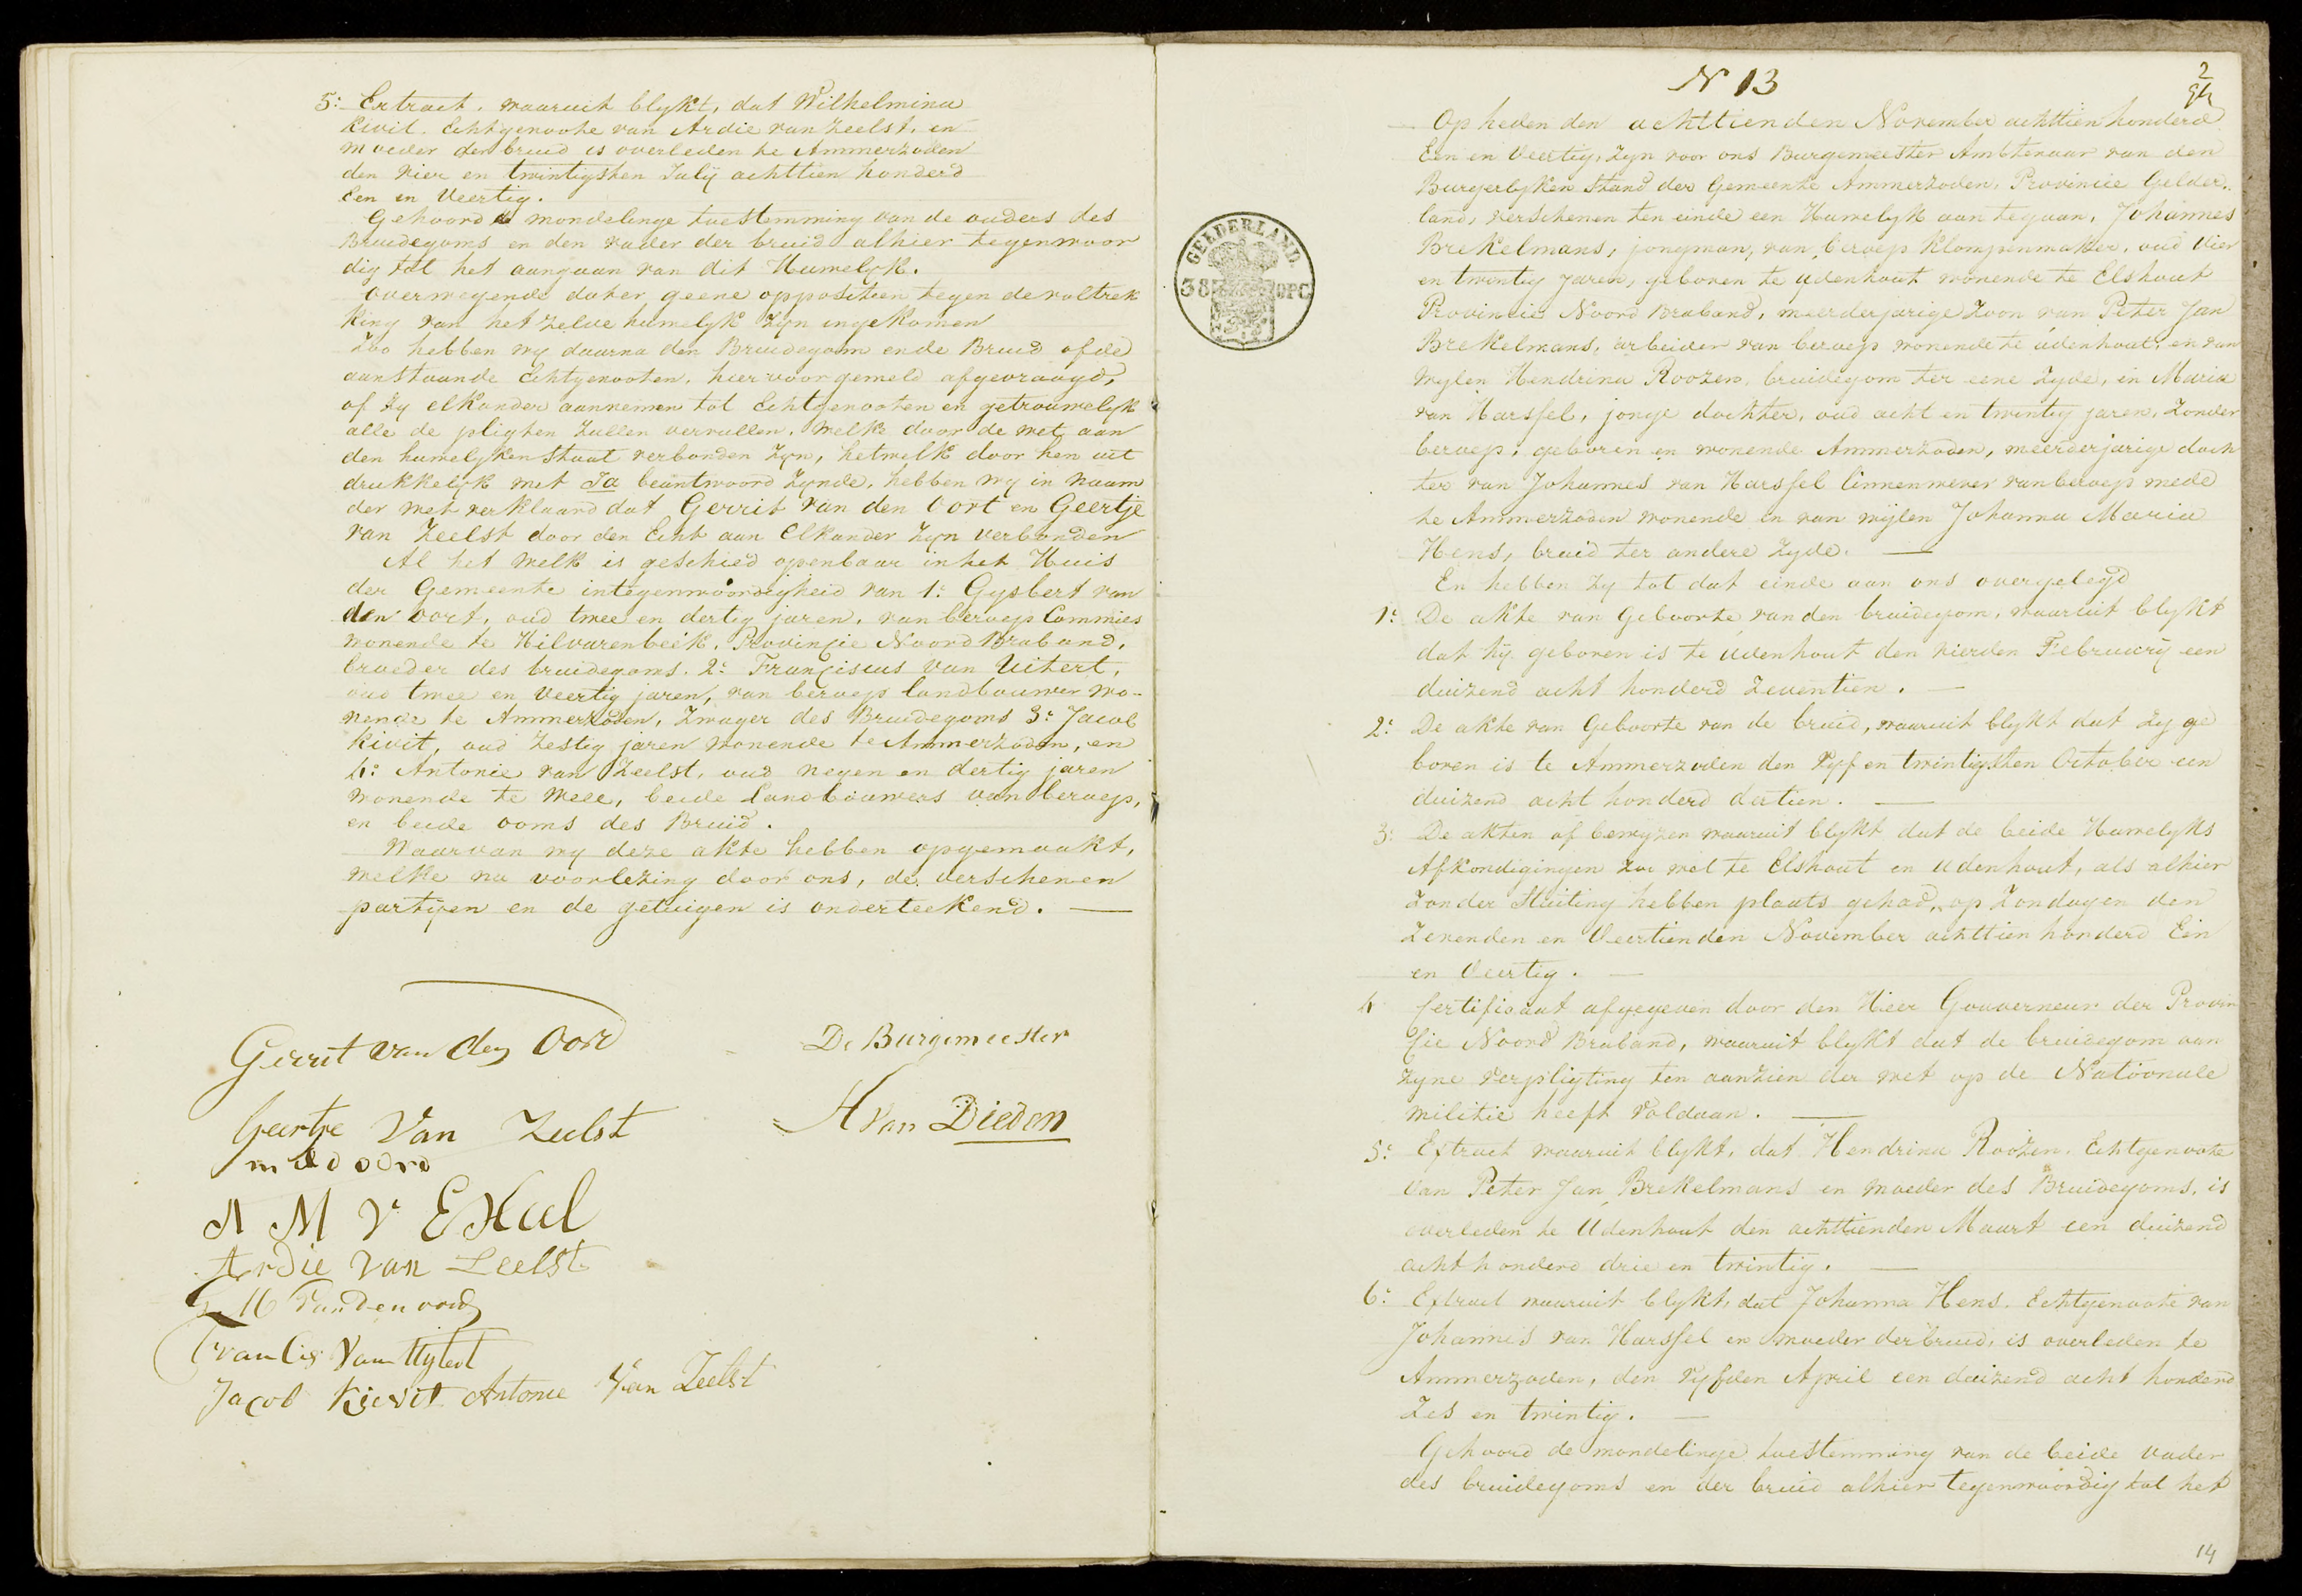 5: Extract, waaruit blykt, dat Wilhelmina
Kivit. Echtgenoote van Ardie van Zeelst, en
moeder der bruid is overleden te Ammerzoden
den vier en twintigsten Julij achttien honderd
Een en Veertig.
Gehoord de mondelinge toestemming van de ouders des
Bruidegoms en den vader der bruid alhier tegenwoor
dig tot het aangaan van dit Huwelyk.
Overwegende dat er geene oppositien tegen de voltrek
king van het zelve huwelyk zyn ingekomen
Zoo hebben wy daarna den Bruidegom en de Bruid of de
aanstaande Echtgenooten, hier voor gemeld afgevraagd,
of zy elkander aannemen tot Echtgenooten en getrouwelyk
alle de pligten zullen vervullen, welke door de wet aan
den huwelyken Staat verbonden zyn, hetwelk door hen uit
drukkelyk met Ja beäntwoord zynde, hebben wy in naam
der wet verklaard dat Gerrit van den Oort en Geertje
van Zeelst door den Echt aan Elkander zyn verbonden
Al het welk is geschied openbaar in het Huis
der Gemeente in tegenwoordigheid van 1: Gysbert van
den Oort, oud twee en dertig jaren, van beroep Commies
wonende te Hilvarenbeek, Provincie Noord Braband,
broeder des bruidegoms. 2: Franciscus van Uitert,
oud twee en Veertig jaren, van beroep landbouwer wo-
nende te Ammerzoden, Zwager des Bruidegoms 3: Jacob
Kivit, oud Zestig jaren wonende te Ammerzoden, en
4: Antonie van Zeelst, oud negen en dertig jaren
wonende te Well, beide Landbouwers van beroep,
en beide ooms des Bruid.
Waarvan wy deze akte hebben opgemaakt,
welke na voorlezing door ons, de verschenen
partijen en de getuigen is onderteekend.
Gerrit van den Oord
De Burgemeester
Geertje Van Zeelst
H Van Dieden
A M V
Ardie Van Zeelst
G
Francis Van Uytert
Jacob Kievit Antonie Van Zeelst
GELDERLAND.
38 OPC
N 13
2
Op heden den achttienden November achttien honderd
Een en Veertig, zyn voor ons Burgemeester Ambtenaar van den
Burgerlyken Stand der Gemeente Ammerzoden, Provincie Gelder-
land, verschenen ten einde een Huwelyk aan tegaan, Johannes
Brekelmans, jongman, van beroep Klompenmaker, oud vier
en twintig Jaren, geboren te Udenhout wonende te Elshout
Provincie Noord Braband, meerderjarige Zoon van Peter Jan
Brekelmans, arbeider van beroep wonende te Udenhout, en van
wylen Hendrina Roozen, bruidegom ter eene zyde, en Maria
van Harssel, jonge dochter, oud acht en twintig jaren, zonder
beroep, geboren en wonende Ammerzoden, meerderjarige doch
ter van Johannes van Harssel linnenwever van beroep mede
te Ammerzoden wonende en van wylen Johanna Maria
Hens, bruid ter andere zyde.
En hebben zy tot dat einde aan ons overgelegd
1: De akte van Geboorte van den bruidegom, waaruit blykt
dat hij geboren is te Udenhout den vierden Februarij een
duizend acht honderd Zeventien.
2: De akte van Geboorte van de bruid, waaruit blykt dat zy ge
boren is te Ammerzoden den Vyf en twintigsten October een
duizend acht honderd dertien.
3: De akten of bewyzen waaruit blykt dat de beide Huwelyks
Afkondigingen zoo wel te Elshout en Udenhout, als alhier
Zonder Stuiting hebben plaats gehad, op Zondagen den
Zevenden en Veertienden November achttien honderd Een
en Veertig.
4 Certificaat afgegeven door den Heer Gouverneur der Provin
cie Noord Braband, waaruit blykt dat de bruidegom aan
zyne Verpligting ten aanzien der wet op de Nationale
militie heeft Voldaan.
5: Extract waaruit blykt, dat Hendrina Roozen, Echtgenoote
van Peter Jan Brekelmans en moeder des Bruidegoms, is
overleden te Udenhout den achttienden Maart een duizend
acht honderd drie en twintig.
6: Extract waaruit blykt, dat Johanna Hens, Echtgenoote van
Johannes van Harssel en moeder der bruid, is overleden te
Ammerzoden, den vyfden April een duizend acht honderd
Zes en twintig.
Gehoord de mondelinge toestemming van de beide vader
des bruidegoms en der bruid alhier tegenwoordig tot het
14